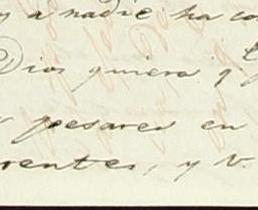 y a nadie ha co
Dios quiera q
pesares en
rentes, y V.